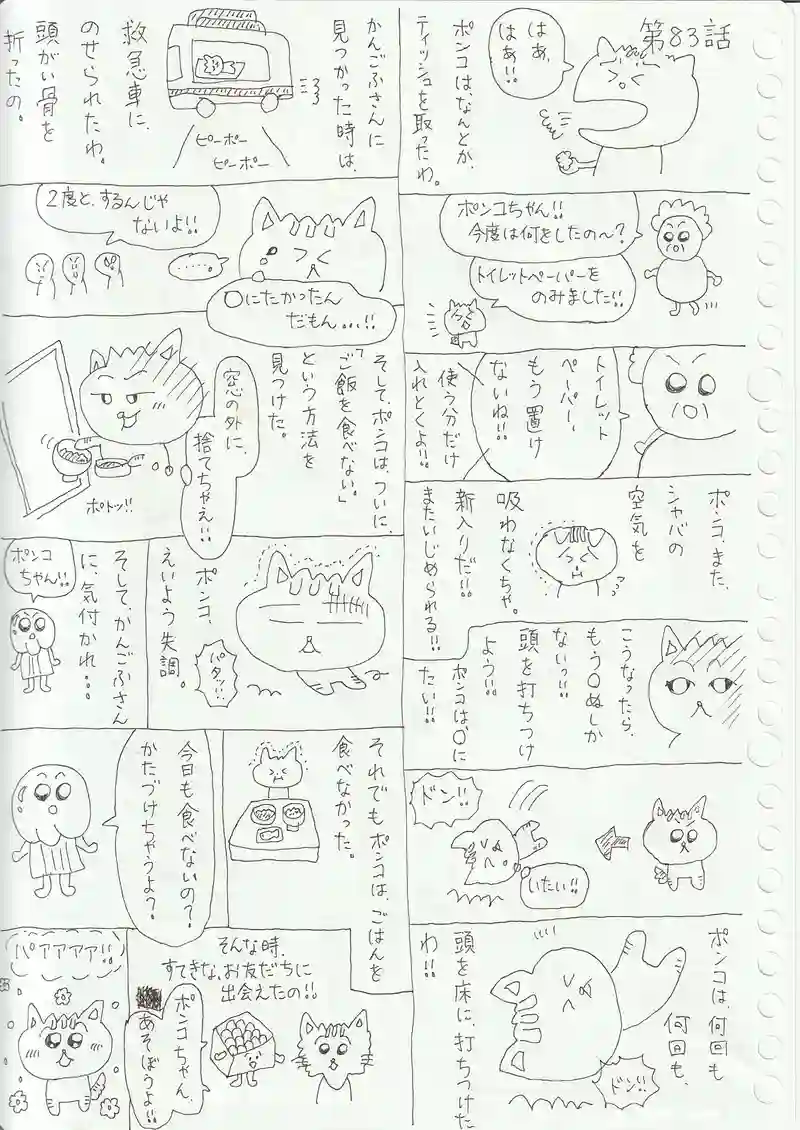 第83話
はぁ、
はぁ!!
ポンコは、なんとか、
ティッシュを取ったわ。
ポンコちゃん!!
今度は何をしたの〜?
トイレットペーパーを
のみました!!
トイレット
ペーパー、
もう置け
ないね!!
使う分だけ
入れとくよ!!
ポンコ、また、
シャバの
空気を
吸わなくちゃ。
新入りだ!!
またいじめられる!!
こうなったら、
もう〇ぬしか
ないっ!!
頭を打ちつけ
よう!!
ポンコは〇に
たい!!
ドン!!
いたい!!
ポンコは、何回も
何回も、
頭を床に、打ちつけた
わ!!
ドン!!
かんごふさんに
見つかった時は、
ピーポー
ピーポー
救急車に、
のせられたわ。
頭がい骨を
折ったの。
2度と、するんじゃ
ないよ!!
.....
〇にたかったん
だもん...!!
そして、ポンコは、ついに、
「ご飯を食べない。」
という方法を
見つけた。
窓の外に、
捨てちゃえ!!
ポトッ!!
ポンコ、
えいよう失調。
パタッ!!
そして、かんごふさん
に、気付かれ...
ポンコ
ちゃん!!
それでもポンコは、ごはんを
食べなかった。
今日も食べないの?
かたづけちゃうよ?
そんな時、
すてきな、お友だちに
出会えたの!!
ポンコちゃん、
あそぼうよ!!
パァアアア!!